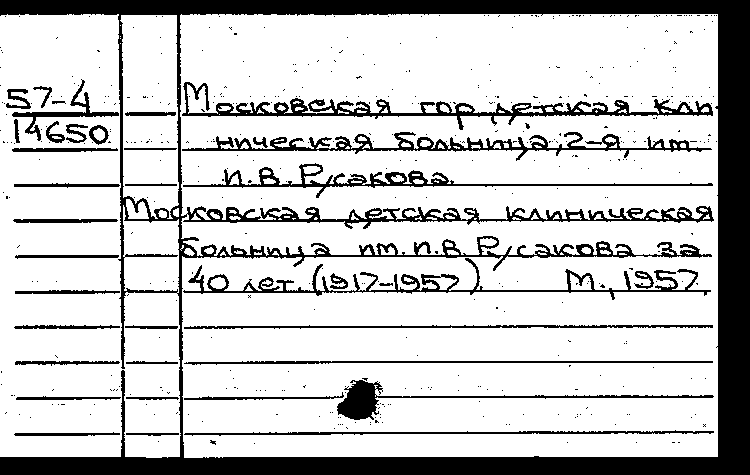 57-4
14650
Московская гор. детская кли-
ническая больница, 2-я, им.
И.В. Русакова.
Московская детская клиническая
больница им. И.В. Русакова за
40 лет. (1917-1957). М., 1957.